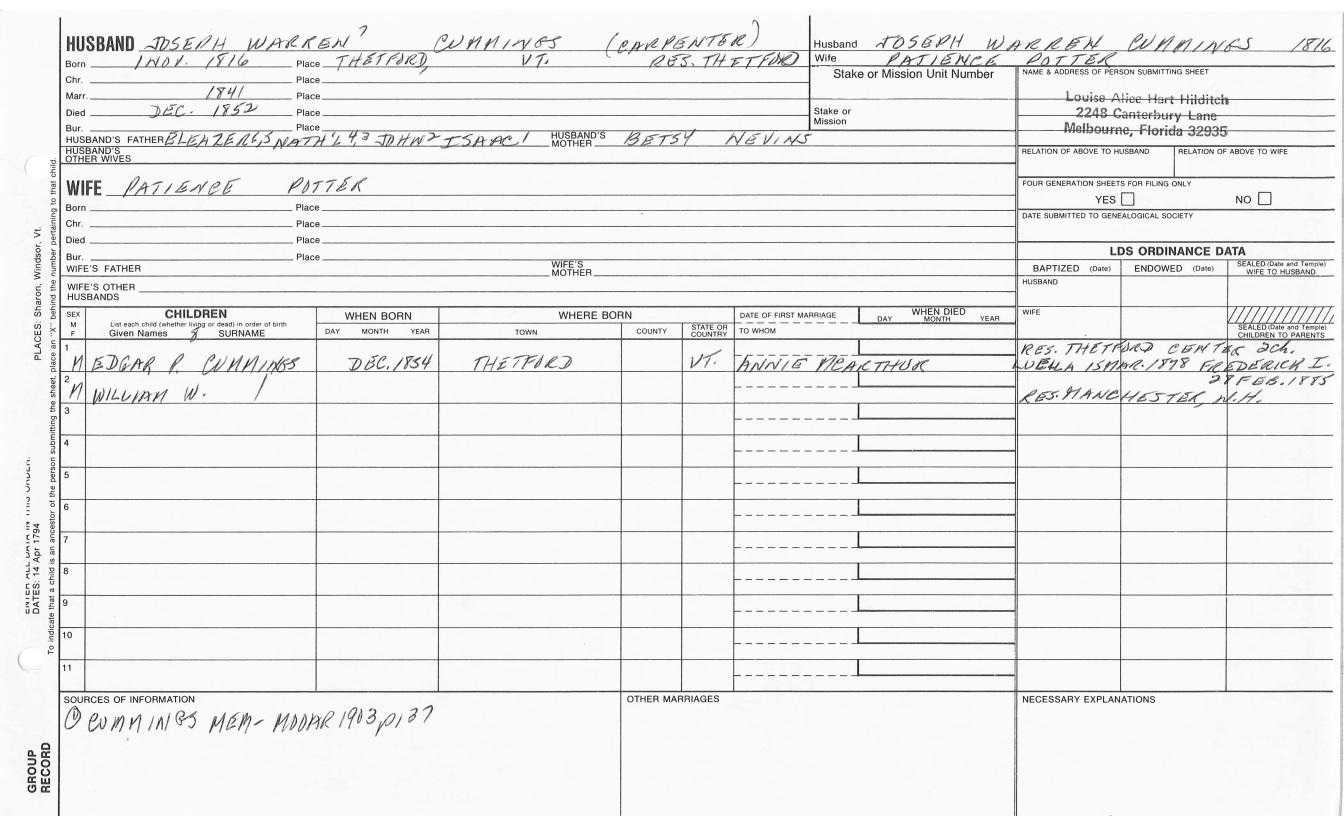 HUSBAND JOSEPH WARREN 7 CUMMINGS (CARPENTER)
Born 1 NOV. 1816 Place THETFORD, VT. RES. THETFORD
Chr. Place
Marr. 1841 Place
Died DEC. 1852 Place
Bur. Place
HUSBAND'S FATHER ELEAZER 6,5 NATH'L 4,3 JOHN 2 ISAAC 1 HUSBAND'S MOTHER BETSY NEVINS
HUSBAND'S OTHER WIVES
Husband JOSEPH WARREN CUMMINGS 1816
Wife PATIENCE POTTER
Stake or Mission Unit Number
Stake or Mission
NAME & ADDRESS OF PERSON SUBMITTING SHEET
Louise Alice Hart Hilditch
2248 Canterbury Lane
Melbourne, Florida 32935
RELATION OF ABOVE TO HUSBAND RELATION OF ABOVE TO WIFE
FOUR GENERATION SHEETS FOR FILING ONLY
YES NO
DATE SUBMITTED TO GENEALOGICAL SOCIETY
WIFE PATIENCE POTTER
Born Place
Chr. Place
Died Place
Bur. Place
WIFE'S FATHER WIFE'S MOTHER
WIFE'S OTHER HUSBANDS
LDS ORDINANCE DATA
BAPTIZED (Date) ENDOWED (Date) SEALED (Date and Temple) WIFE TO HUSBAND
HUSBAND
WIFE
SEALED (Date and Temple) CHILDREN TO PARENTS
SEX M F
CHILDREN
List each child (whether living or dead) in order of birth
Given Names 8 SURNAME
WHEN BORN
DAY MONTH YEAR
WHERE BORN
TOWN COUNTY STATE OR COUNTRY
DATE OF FIRST MARRIAGE
TO WHOM
WHEN DIED
DAY MONTH YEAR
1 M EDGAR P. CUMMINGS DEC. 1854 THETFORD VT. ANNIE McARTHUR
RES. THETFORD CENTER 2ch.
LUELLA 15 MAR. 1878 FREDERICK I.
28 FEB. 1885
2 M WILLIAM W. RES. MANCHESTER, N.H.
3
4
5
6
7
8
9
10
11
SOURCES OF INFORMATION
① CUMMINGS MEM- MOOAR 1903, p137
OTHER MARRIAGES
NECESSARY EXPLANATIONS
PLACES: Sharon, Windsor, Vt.
ENTER ALL DATA IN THIS ORDER:
DATES: 14 Apr 1794
To indicate that a child is an ancestor of the person submitting the sheet, place an "X" behind the number pertaining to that child.
GROUP RECORD